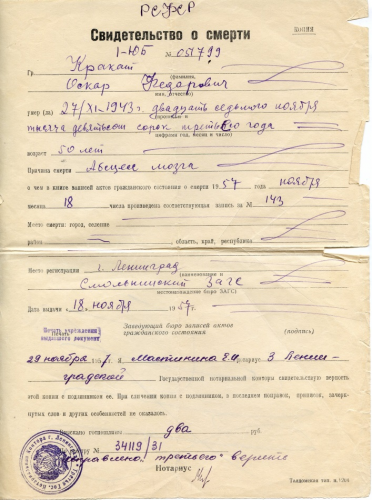 РСФСР
КОПИЯ
Свидетельство о смерти
I-ЮБ № 051799
Гр. Кракат
(фамилия,
Оскар Федорович
имя, отчество)
умер (ла) 27/XI-1943 г. двадцать седьмого ноября
(прописью и
тысяча девятьсот сорок третьего года
цифрами год, месяц и число)
возраст 50 лет
Причина смерти Абсцесс мозга
о чем в книге записей актов гражданского состояния о смерти 1957 года ноября
месяц 18 числа произведена соответствующая запись за № 143
Место смерти: город, селение
район область, край, республика
Место регистрации г. Ленинград
(наименование и
Смольнинский ЗАГС
местонахождение бюро ЗАГС)
Дата выдачи „18. ноября 1957 г.
Печать учреждения
выдавшего документ
Заведующий бюро записей актов
гражданского состояния
(подпись)
29 ноября 1957 г. Я нотариус 3 Ленин-
градской Государственной нотариальной конторы свидетельствую верность
этой копии с подлинником ее. При сличении копии с подлинником, в последнем поправок, приписок, зачерк-
нутых слов и других особенностей не оказалось.
Взыскано госпошлины два руб.
По реестру № 34119/31
исправлено „третьего" верить
Нотариус